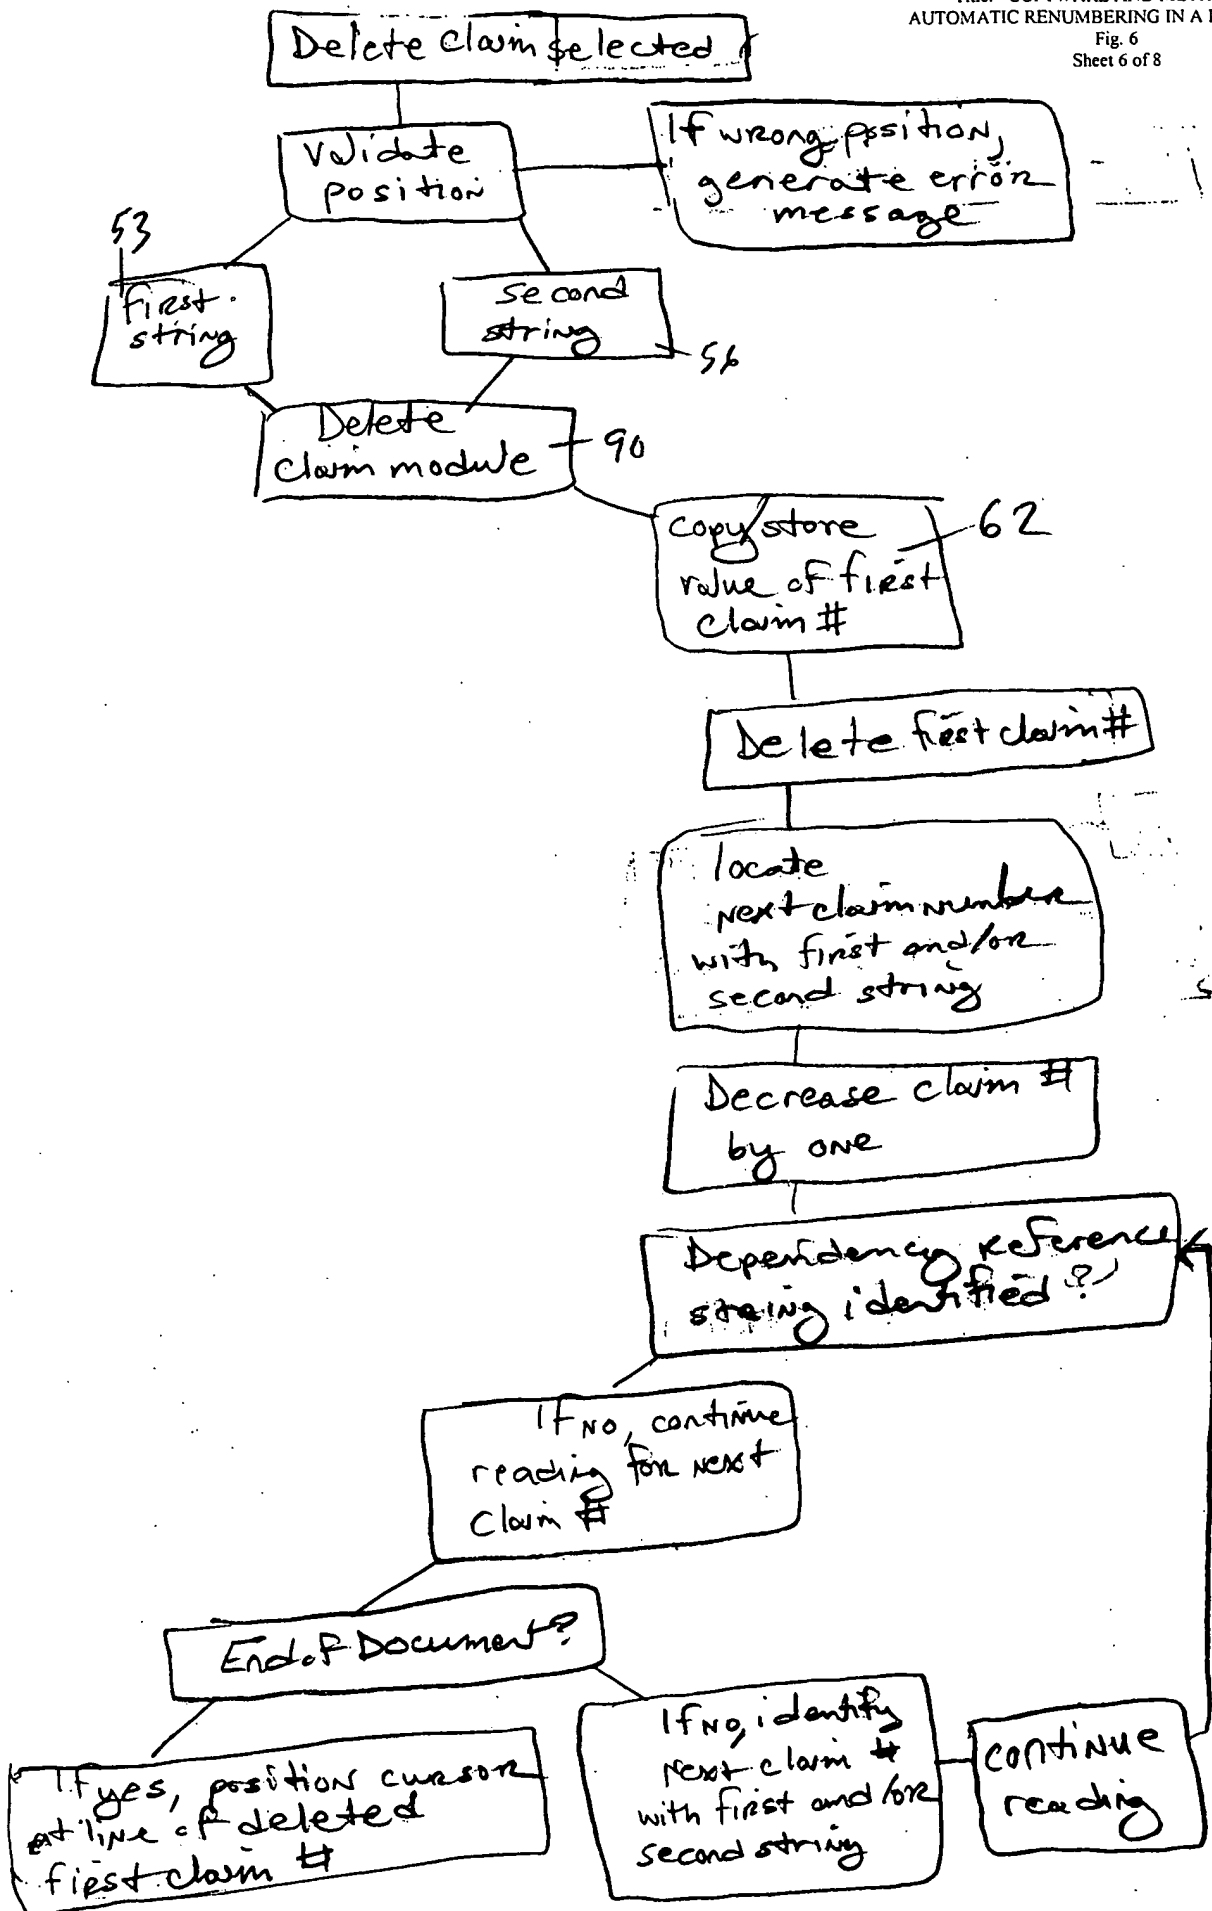 AUTOMATIC RENUMBERING IN A
Fig. 6
Sheet 6 of 8
Delete claim selected
Validate
position
If wrong position,
generate error
message
53
first
string
second
string
56
Delete
claim module
90
copy/store
value of first
claim #
62
Delete first claim #
locate
next claim number
with first and/or
second string
Decrease claim #
by one
Dependency reference
string identified?
If no, continue
reading for next
claim #
End of Document?
If yes, position cursor
at line of deleted
first claim #
If no, identify
next claim #
with first and/or
second string
continue
reading